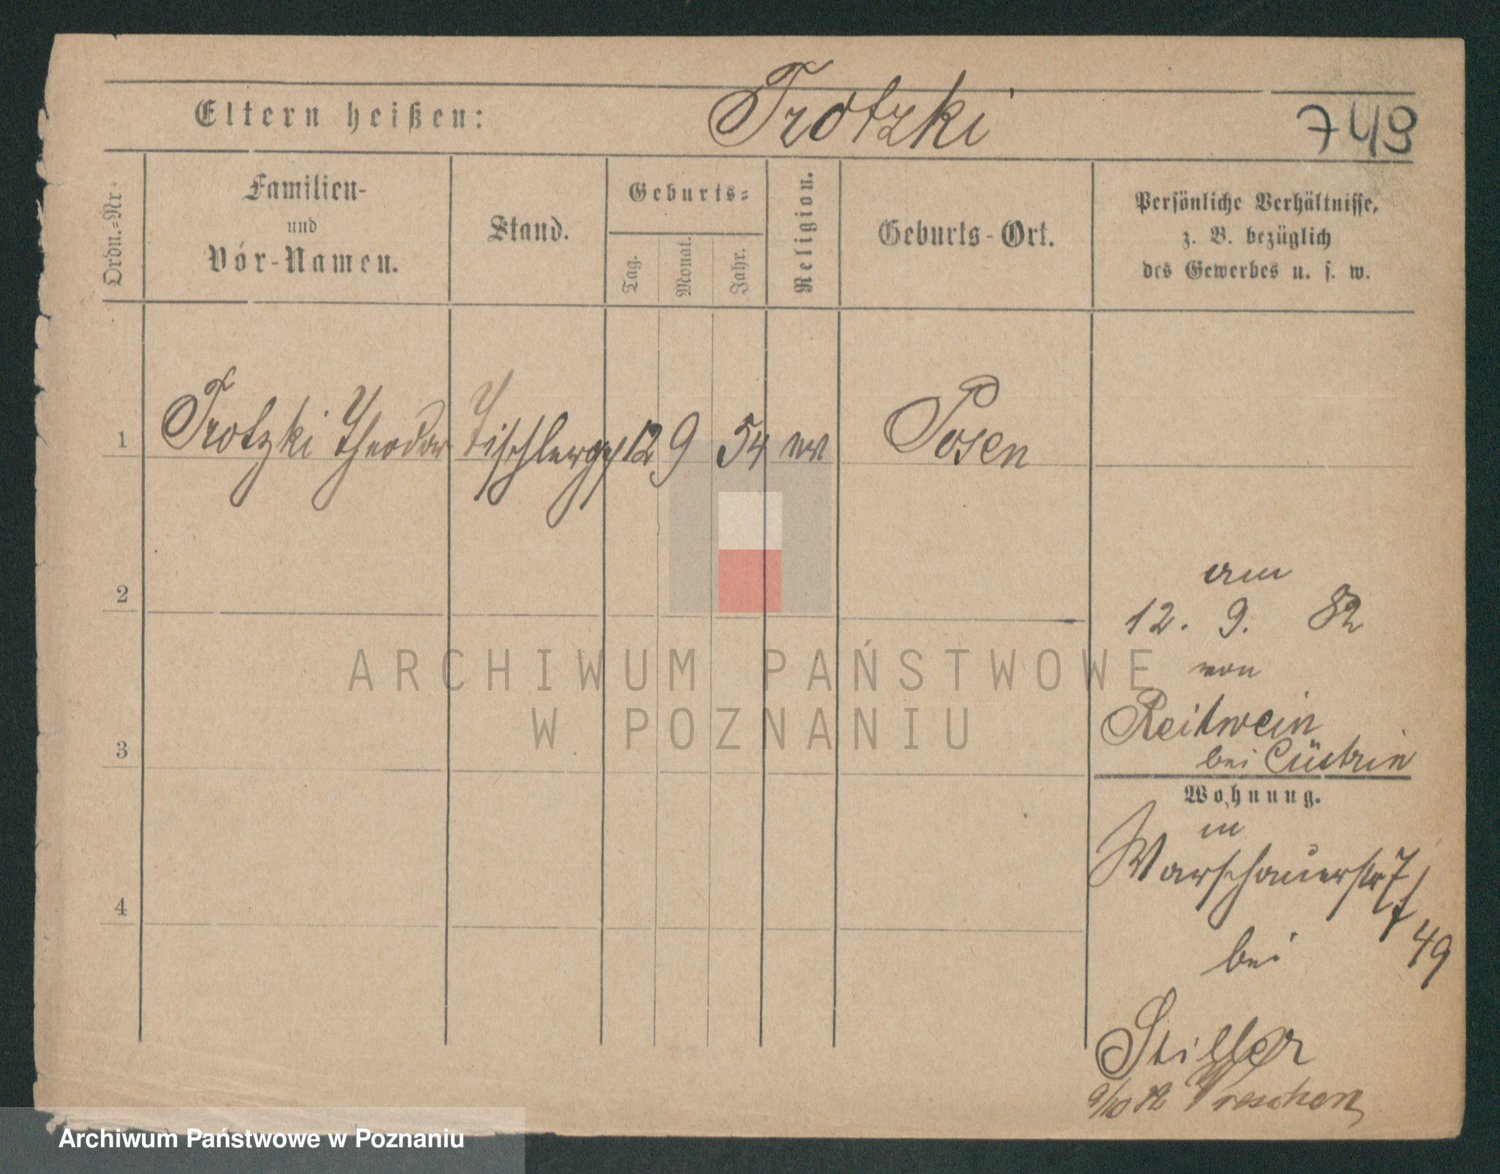 Eltern heißen: Trotzki 743
Ordn.-Nr.
Familien-
und
Vor-Namen.
Stand.
Geburts-
Tag.
Monat.
Jahr.
Religion.
Geburts-Ort.
Persönliche Verhältnisse,
z. B. bezüglich
des Gewerbes u. s. w.
1 Trotzki Theodor Tischlerges 12 9 54 Posen
2
3
4
am
12. 9. 82
von
Reitwein
bei Cüstrin
Wohnung.
in
Warschauerstr 7/
49
bei
Stiller
9/10 82 Wreschen
ARCHIWUM PAŃSTWOWE
W POZNANIU
Archiwum Państwowe w Poznaniu